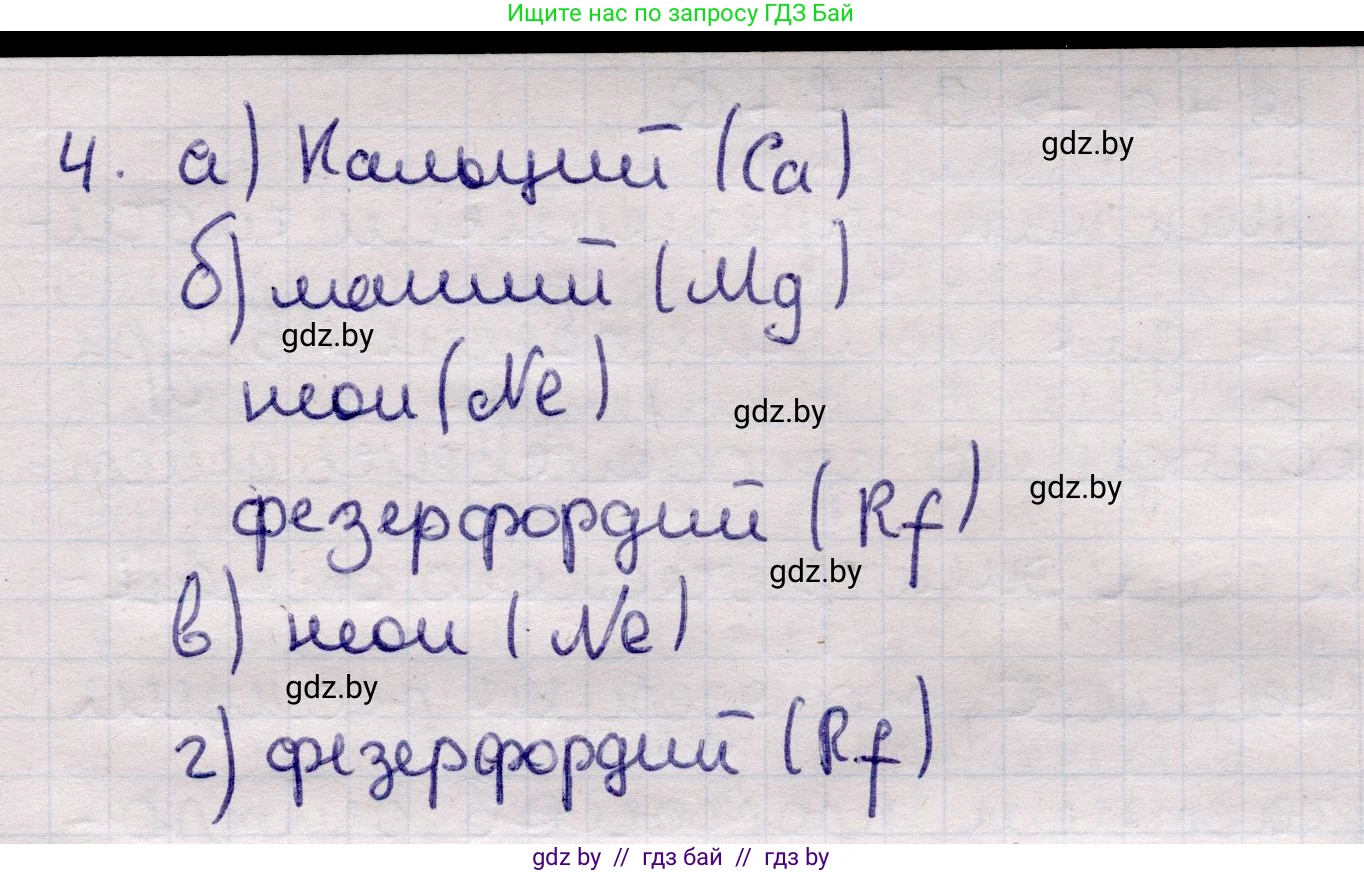 Ищите нас по запросу ГДЗ Бай
4. а) Кальций (Ca)
gdz.by
б) магний (Mg)
gdz.by
неон (Ne)
gdz.by
фезерфордий (Rf)
gdz.by
gdz.by
в) неон (Ne)
gdz.by
г) фезерфордий (Rf)
gdz by // гдз бай // гдз by